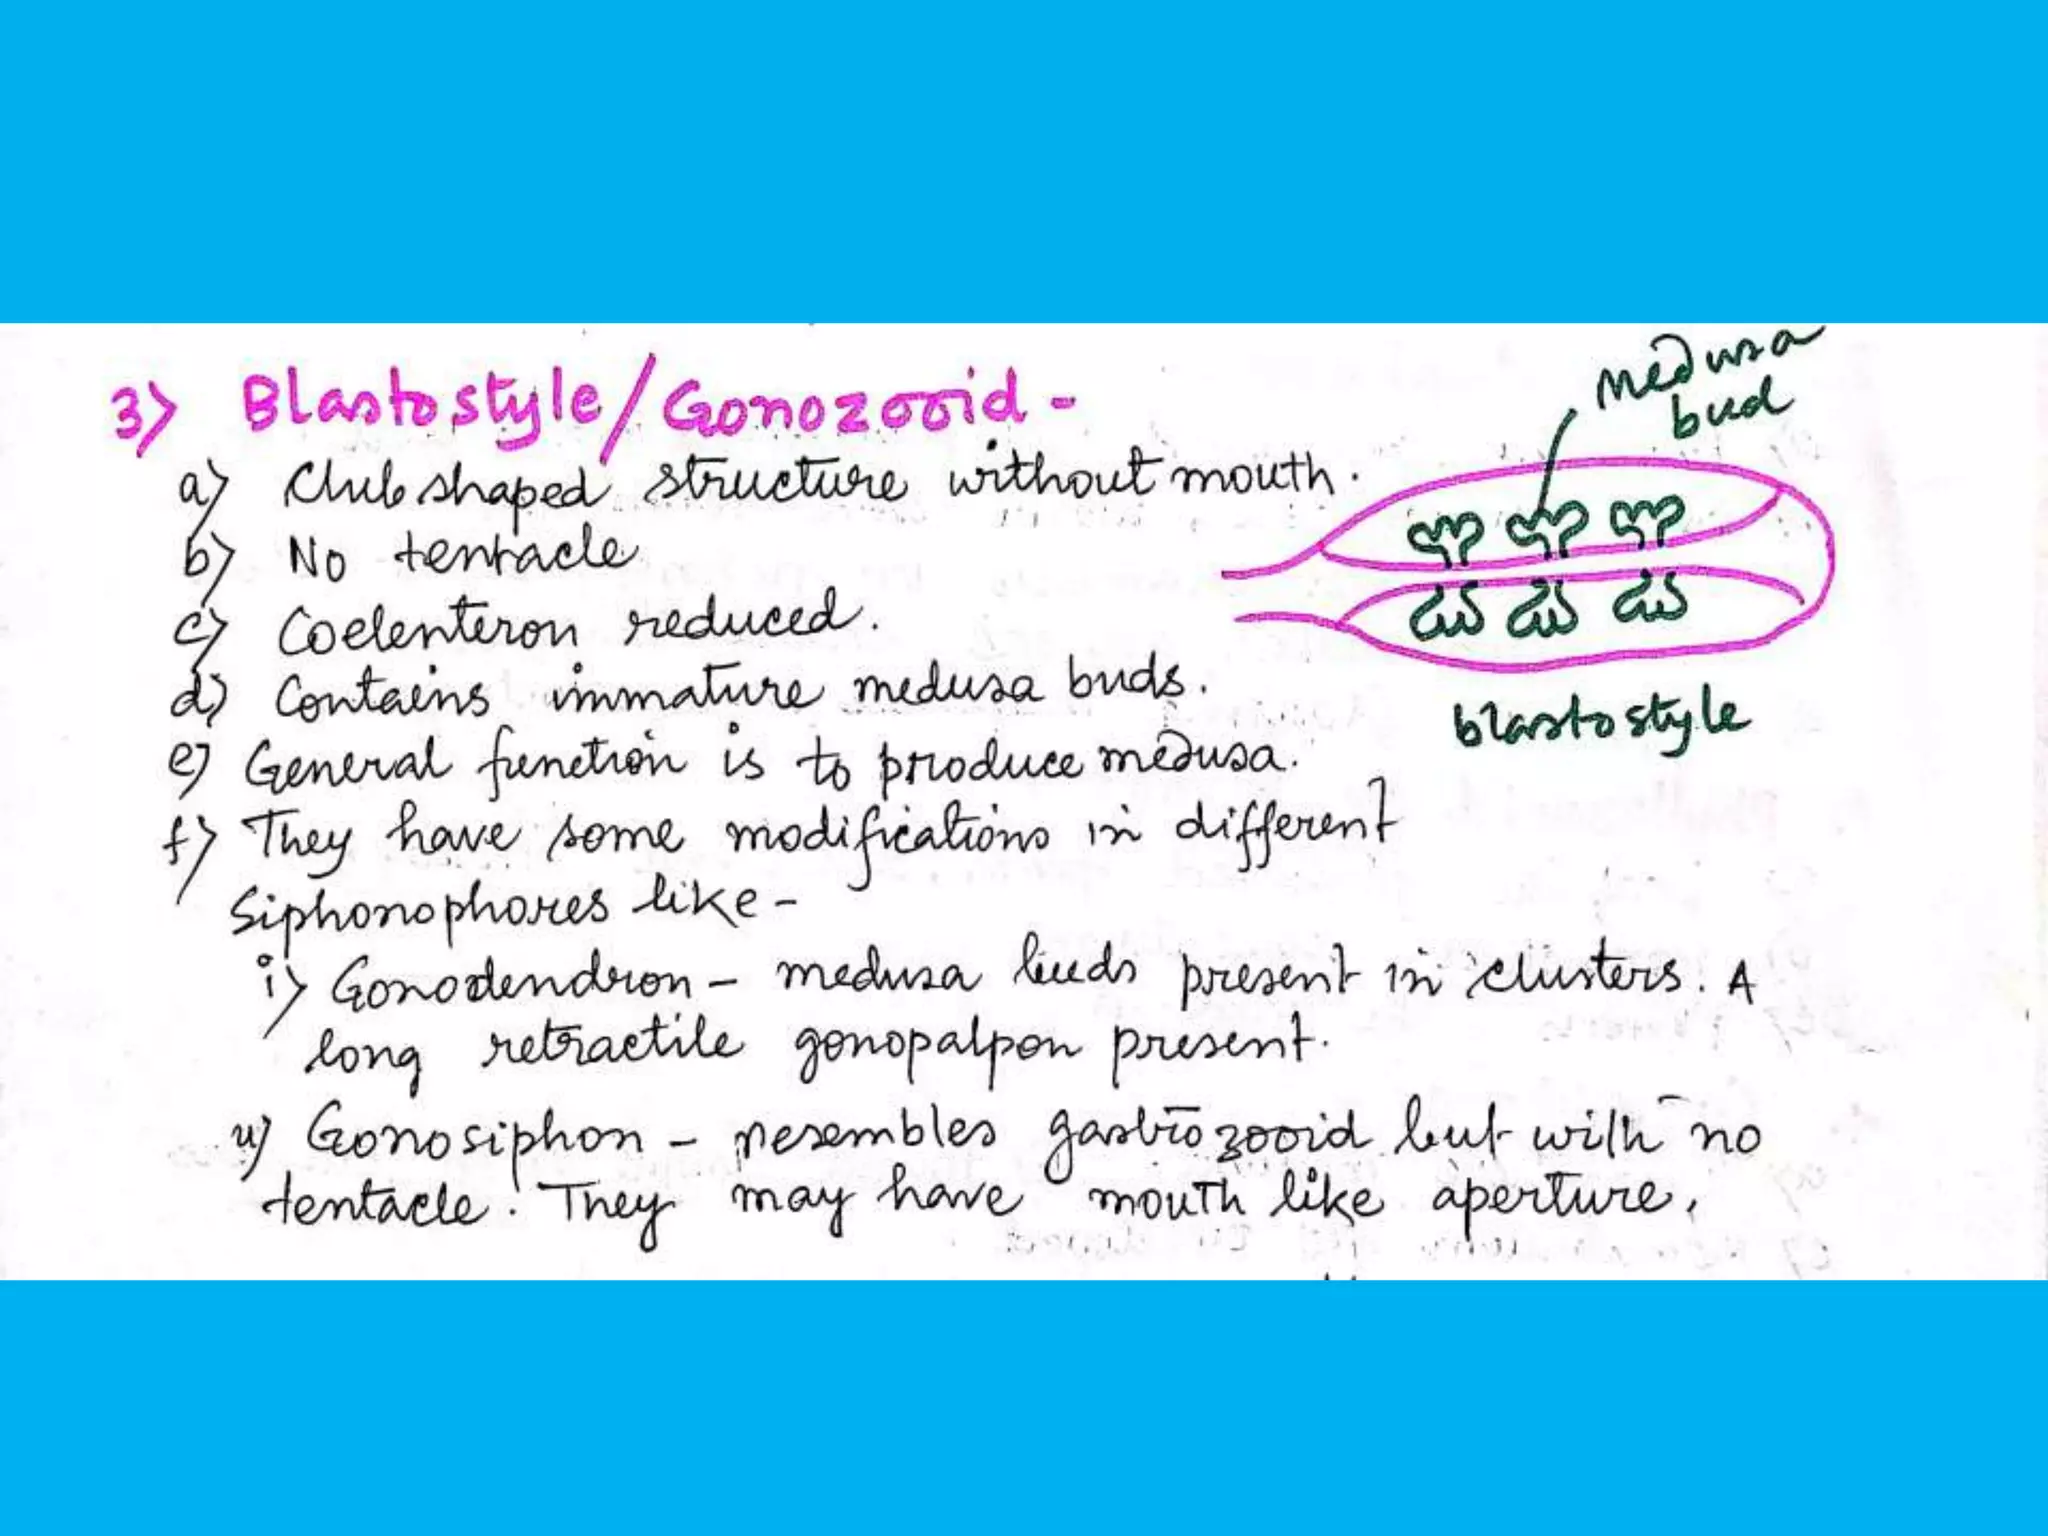 3) Blastostyle/Gonozooid -
a) Club shaped structure without mouth.
b) No tentacle
c) Coelenteron reduced.
d) Contains immature medusa buds.
e) General function is to produce medusa.
f) They have some modifications in different
Siphonophores like -
i) Gonodendron - medusa buds present in clusters. A
long retractile gonopalpon present.
ii) Gonosiphon - resembles gastrozooid but with no
tentacle. They may have mouth like aperture.
medusa
bud
blastostyle